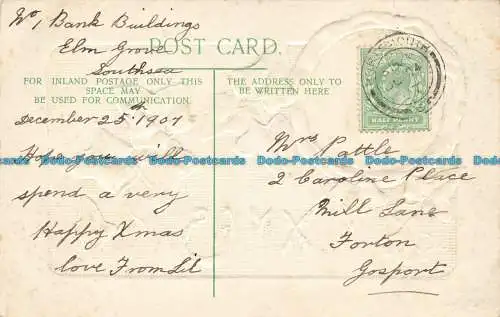 No, 1 Bank Buildings
Elm Grove
Southsea
POST CARD.
FOR INLAND POSTAGE ONLY THIS
SPACE MAY
BE USED FOR COMMUNICATION.
THE ADDRESS ONLY TO
BE WRITTEN HERE
December 25th 1907
Hope you will
spend a very
Happy Xmas
love From Lil
HALF PENNY
Mrs Pattle
2 Caroline Place
Mill Lane
Forton
Gosport
Dodo-Postcards Dodo-Postcards Dodo-Postcards Dodo-Postcards Dodo-Postcards